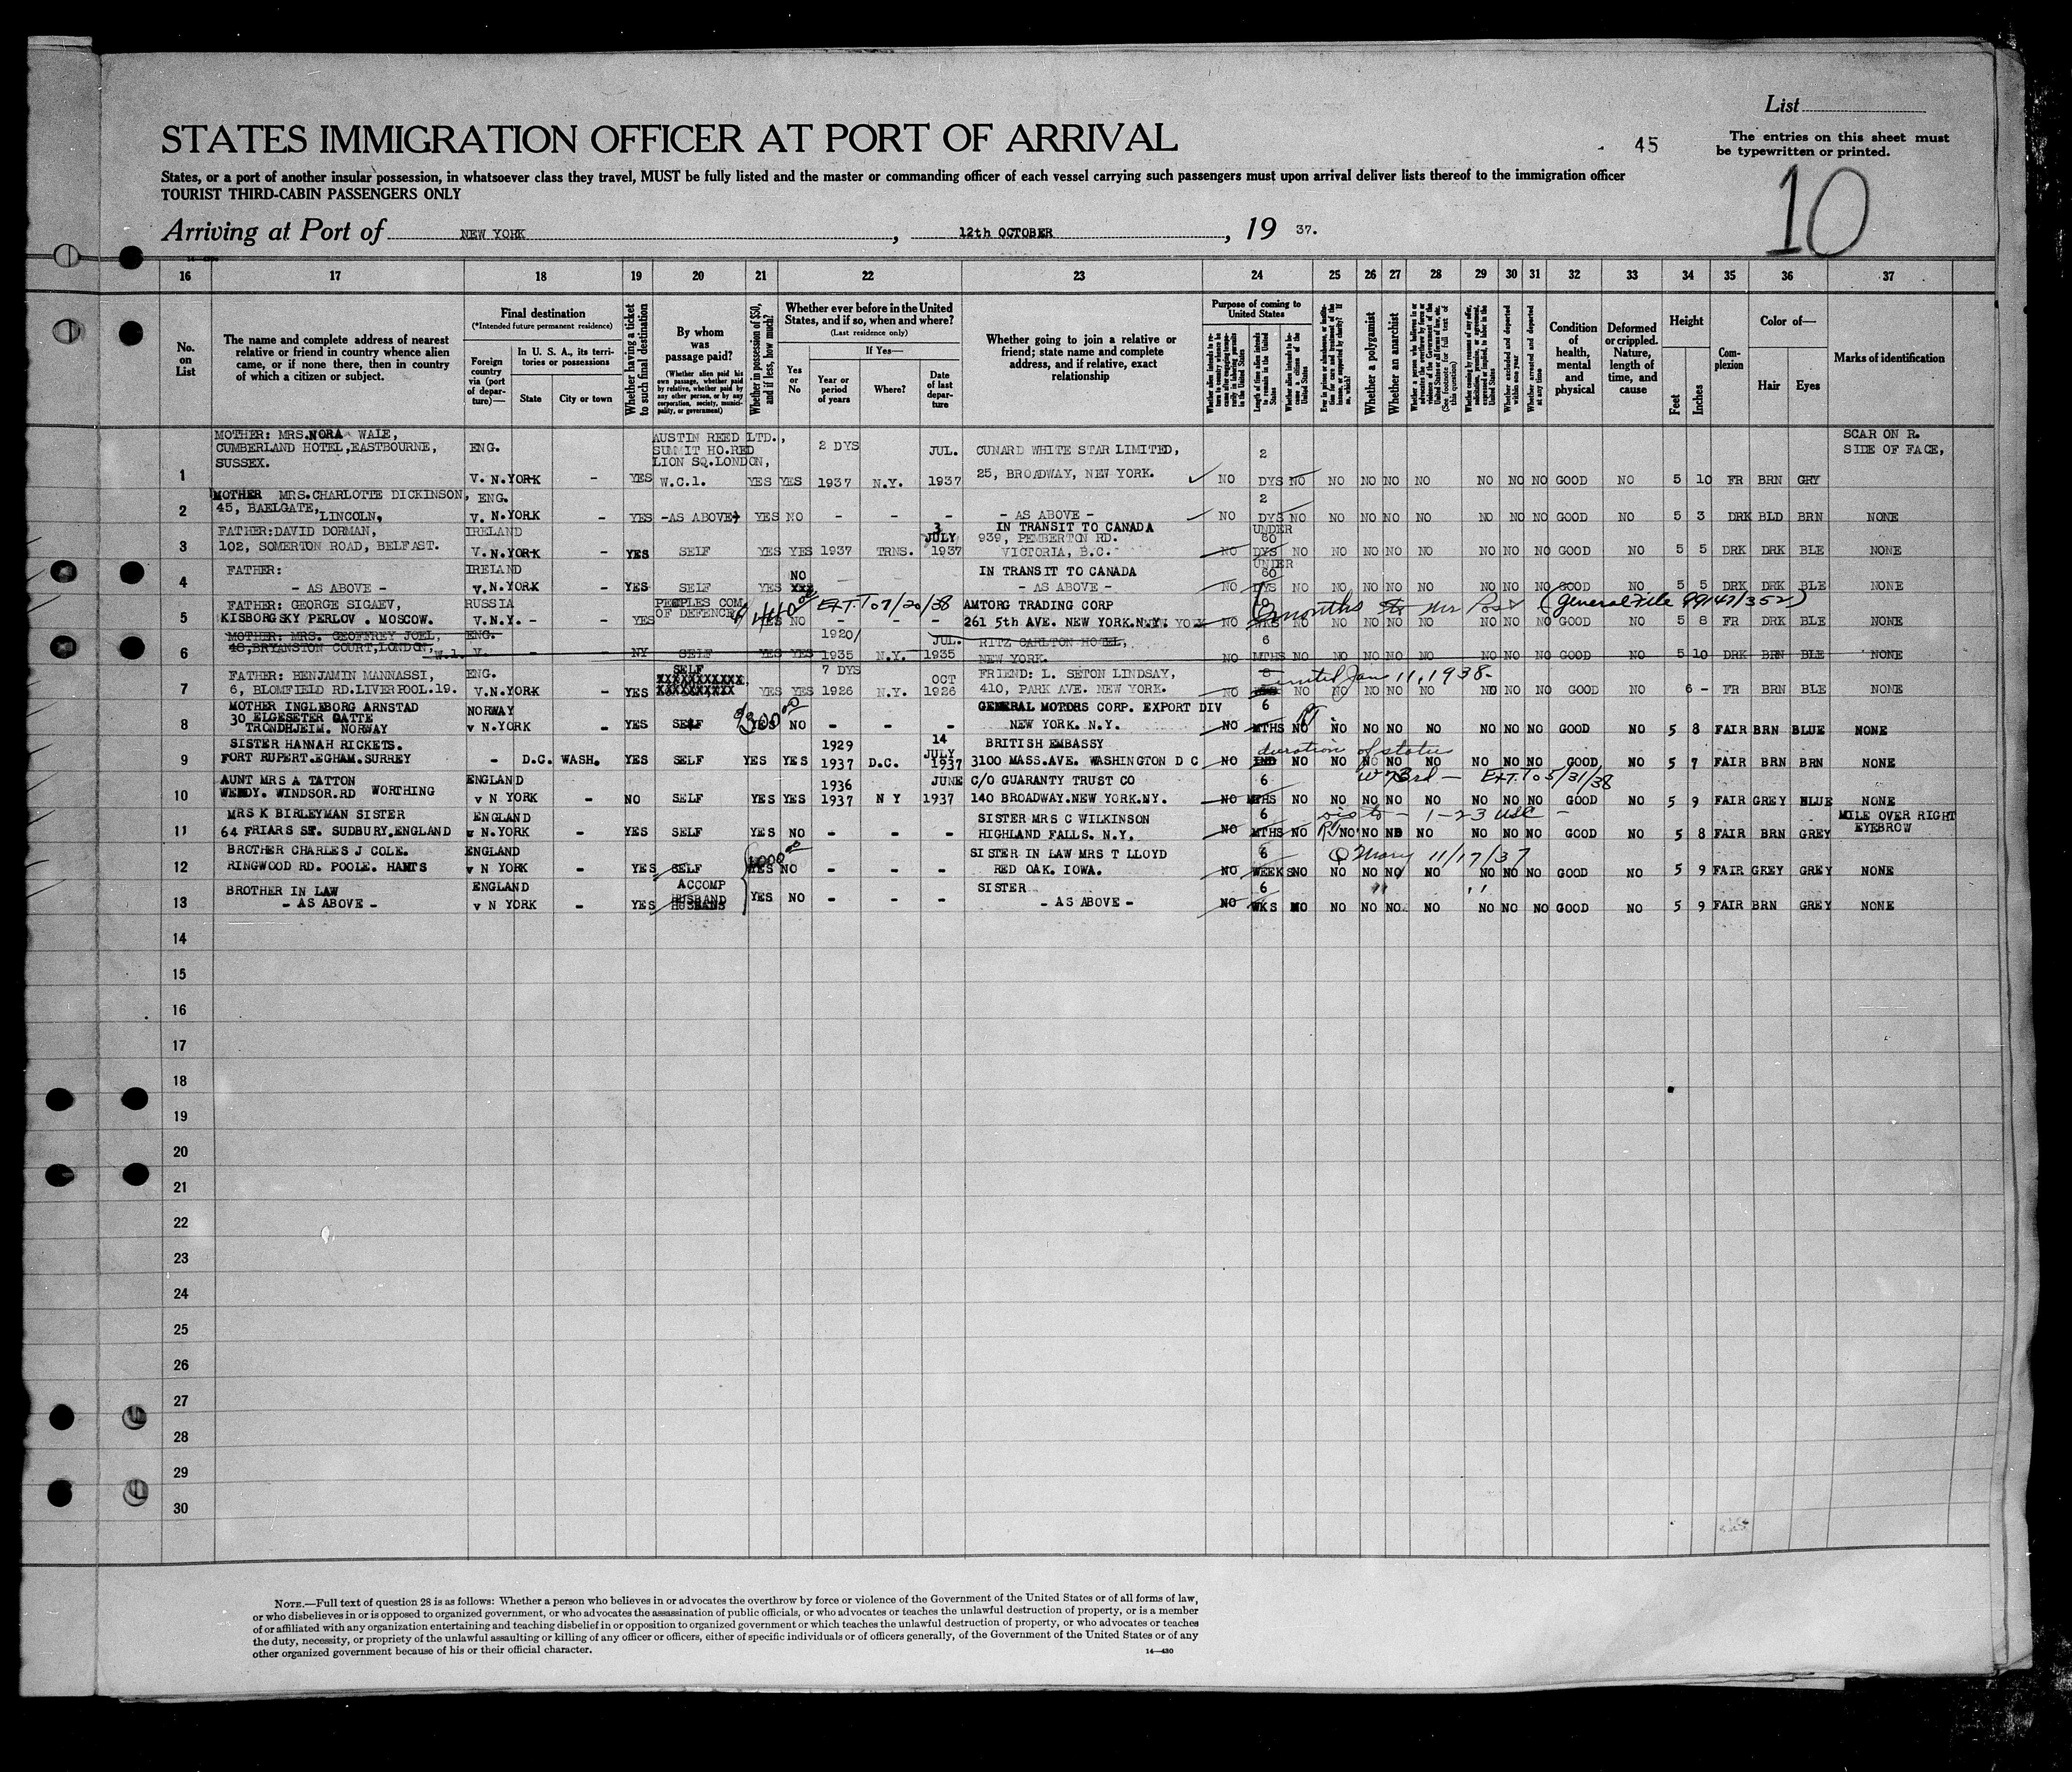 List
STATES IMMIGRATION OFFICER AT PORT OF ARRIVAL
45
The entries on this sheet must
be typewritten or printed.
States, or a port of another insular possession, in whatsoever class they travel, MUST be fully listed and the master or commanding officer of each vessel carrying such passengers must upon arrival deliver lists thereof to the immigration officer
TOURIST THIRD-CABIN PASSENGERS ONLY
10
Arriving at Port of NEW YORK , 12th OCTOBER , 19 37.
16 17 18 19 20 21 22 23 24 25 26 27 28 29 30 31 32 33 34 35 36 37
No. on List
The name and complete address of nearest relative or friend in country whence alien came, or if none there, then in country of which a citizen or subject.
Final destination
(*Intended future permanent residence)
Foreign country via (port of departure)—
In U. S. A., its territories or possessions
State
City or town
Whether having a ticket to such final destination
By whom was passage paid?
(Whether alien paid his own passage, whether paid by relative, whether paid by any other person, or by any corporation, society, municipality, or government)
Whether in possession of $50, and if less, how much?
Whether ever before in the United States, and if so, when and where?
(Last residence only)
Yes or No
If Yes—
Year or period of years
Where?
Date of last departure
Whether going to join a relative or friend; state name and complete address, and if relative, exact relationship
Purpose of coming to United States
Length of time alien intends to remain in the United States
Whether alien intends to become a citizen of the United States
Whether a polygamist
Whether an anarchist
(See footnote for full text of this question)
Whether excluded and deported within one year
Whether arrested and deported at any time
Condition of health, mental and physical
Deformed or crippled. Nature, length of time, and cause
Height
Feet
Inches
Complexion
Color of—
Hair
Eyes
Marks of identification
MOTHER: MRS. NORA WAIE, AUSTIN REED LTD., SCAR ON R.
CUMBERLAND HOTEL, EASTBOURNE, ENG. SUMMIT HO. RED 2 DYS JUL. CUNARD WHITE STAR LIMITED, 2 SIDE OF FACE,
SUSSEX. LION SQ. LONDON,
1 V. N.YORK - YES W.C.1. YES YES 1937 N.Y. 1937 25, BROADWAY, NEW YORK. NO DYS NO NO NO NO NO NO NO NO GOOD NO 5 10 FR BRN GRY
MOTHER MRS. CHARLOTTE DICKINSON, ENG. 2
2 45, BAELGATE, LINCOLN, V. N.YORK - YES -AS ABOVE- YES NO - - - - AS ABOVE - NO DYS NO NO NO NO NO NO NO NO GOOD NO 5 3 DRK BLD BRN NONE
FATHER: DAVID DORMAN, IRELAND 3 JULY IN TRANSIT TO CANADA UNDER
939, PEMBERTON RD. 60
3 102, SOMERTON ROAD, BELFAST. V. N.YORK - YES SELF YES YES 1937 TRNS. 1937 VICTORIA, B.C. NO DYS NO NO NO NO NO NO NO NO GOOD NO 5 5 DRK DRK BLE NONE
FATHER: IRELAND NO IN TRANSIT TO CANADA UNDER 60
4 - AS ABOVE - V. N.YORK - YES SELF YES YES - - - - AS ABOVE - NO DYS NO NO NO NO NO NO NO NO GOOD NO 5 5 DRK DRK BLE NONE
FATHER: GEORGE SIGAEV, RUSSIA PEOPLES COM. EXT. TO 7/20/38 AMTORG TRADING CORP months (General File 99147/352)
5 KISBORGSKY PERLOV . MOSCOW. V.N.Y. - YES OF DEFENCE YES NO - - - 261 5th AVE. NEW YORK.N.Y. NO WKS NO NO NO NO NO NO NO NO GOOD NO 5 8 FR DRK BLE NONE
MOTHER: MRS. GEOFFREY JOEL, ENG. 1920/ JUL. RITZ CARLTON HOTEL, 6
6 48, BRYANSTON COURT, LONDON, W.1. V. - - NY SELF YES YES 1935 N.Y. 1935 NEW YORK. NO MTHS NO NO NO NO NO NO NO NO GOOD NO 5 10 DRK BRN BLE NONE
FATHER: BENJAMIN MANNASSI, ENG. SELF 7 DYS OCT FRIEND: L. SETON LINDSAY, Jan 11, 1938-
7 6, BLOMFIELD RD. LIVERPOOL.19. V.N.YORK - YES XXXXXXXXXX YES YES 1926 N.Y. 1926 410, PARK AVE. NEW YORK. NO NO NO NO NO NO NO NO NO GOOD NO 6 - FR BRN BLE NONE
MOTHER INGLEBORG ARNSTAD NORWAY $300.00 GENERAL MOTORS CORP. EXPORT DIV 6
8 30 ELGESETER GATTE v N.YORK - YES SELF YES NO - - - NEW YORK. N.Y. NO MTHS NO NO NO NO NO NO NO NO GOOD NO 5 8 FAIR BRN BLUE NONE
TRONDHJEIM. NORWAY
SISTER HANNAH RICKETS. 1929 14 JULY BRITISH EMBASSY duration of status
9 FORT RUPERT.EGHAM.SURREY - D.C. WASH. YES SELF YES YES 1937 D.C. 1937 3100 MASS.AVE. WASHINGTON D C NO IND NO NO NO NO NO NO NO NO GOOD NO 5 7 FAIR BRN BRN NONE
AUNT MRS A TATTON ENGLAND 1936 JUNE C/O GUARANTY TRUST CO 6 EXT. TO 5/31/38
10 WENDY. WINDSOR.RD WORTHING v N YORK - NO SELF YES YES 1937 N Y 1937 140 BROADWAY.NEW YORK.NY. NO MTHS NO NO NO NO NO NO NO NO GOOD NO 5 9 FAIR GREY BLUE NONE
MRS K BIRLEYMAN SISTER ENGLAND SISTER MRS C WILKINSON 6 MILE OVER RIGHT
11 64 FRIARS ST. SUDBURY.ENGLAND v N.YORK - YES SELF YES NO - - - HIGHLAND FALLS. N.Y. NO MTHS NO NO NO NO NO NO NO NO GOOD NO 5 8 FAIR BRN GREY EYEBROW
BROTHER CHARLES J COLE. ENGLAND 1000.00 SISTER IN LAW MRS T LLOYD 6 Q Mary 11/17/37
12 RINGWOOD RD. POOLE. HANTS v N YORK - YES SELF YES NO - - - RED OAK. IOWA. NO WEEKS NO NO NO NO NO NO NO NO GOOD NO 5 9 FAIR GREY GREY NONE
BROTHER IN LAW ENGLAND ACCOMP SISTER 6 " "
13 - AS ABOVE - v N YORK - YES HUSBAND YES NO - - - - AS ABOVE - NO WKS NO NO NO NO NO NO NO NO GOOD NO 5 9 FAIR BRN GREY NONE
14
15
16
17
18
19
20
21
22
23
24
25
26
27
28
29
30
NOTE.—Full text of question 28 is as follows: Whether a person who believes in or advocates the overthrow by force or violence of the Government of the United States or of all forms of law,
or who disbelieves in or is opposed to organized government, or who advocates the assassination of public officials, or who advocates or teaches the unlawful destruction of property, or is a member
of or affiliated with any organization entertaining and teaching disbelief in or opposition to organized government or which teaches the unlawful destruction of property, or who advocates or teaches
the duty, necessity, or propriety of the unlawful assaulting or killing of any officer or officers, either of specific individuals or of officers generally, of the Government of the United States or of any
other organized government because of his or their official character.
14—430